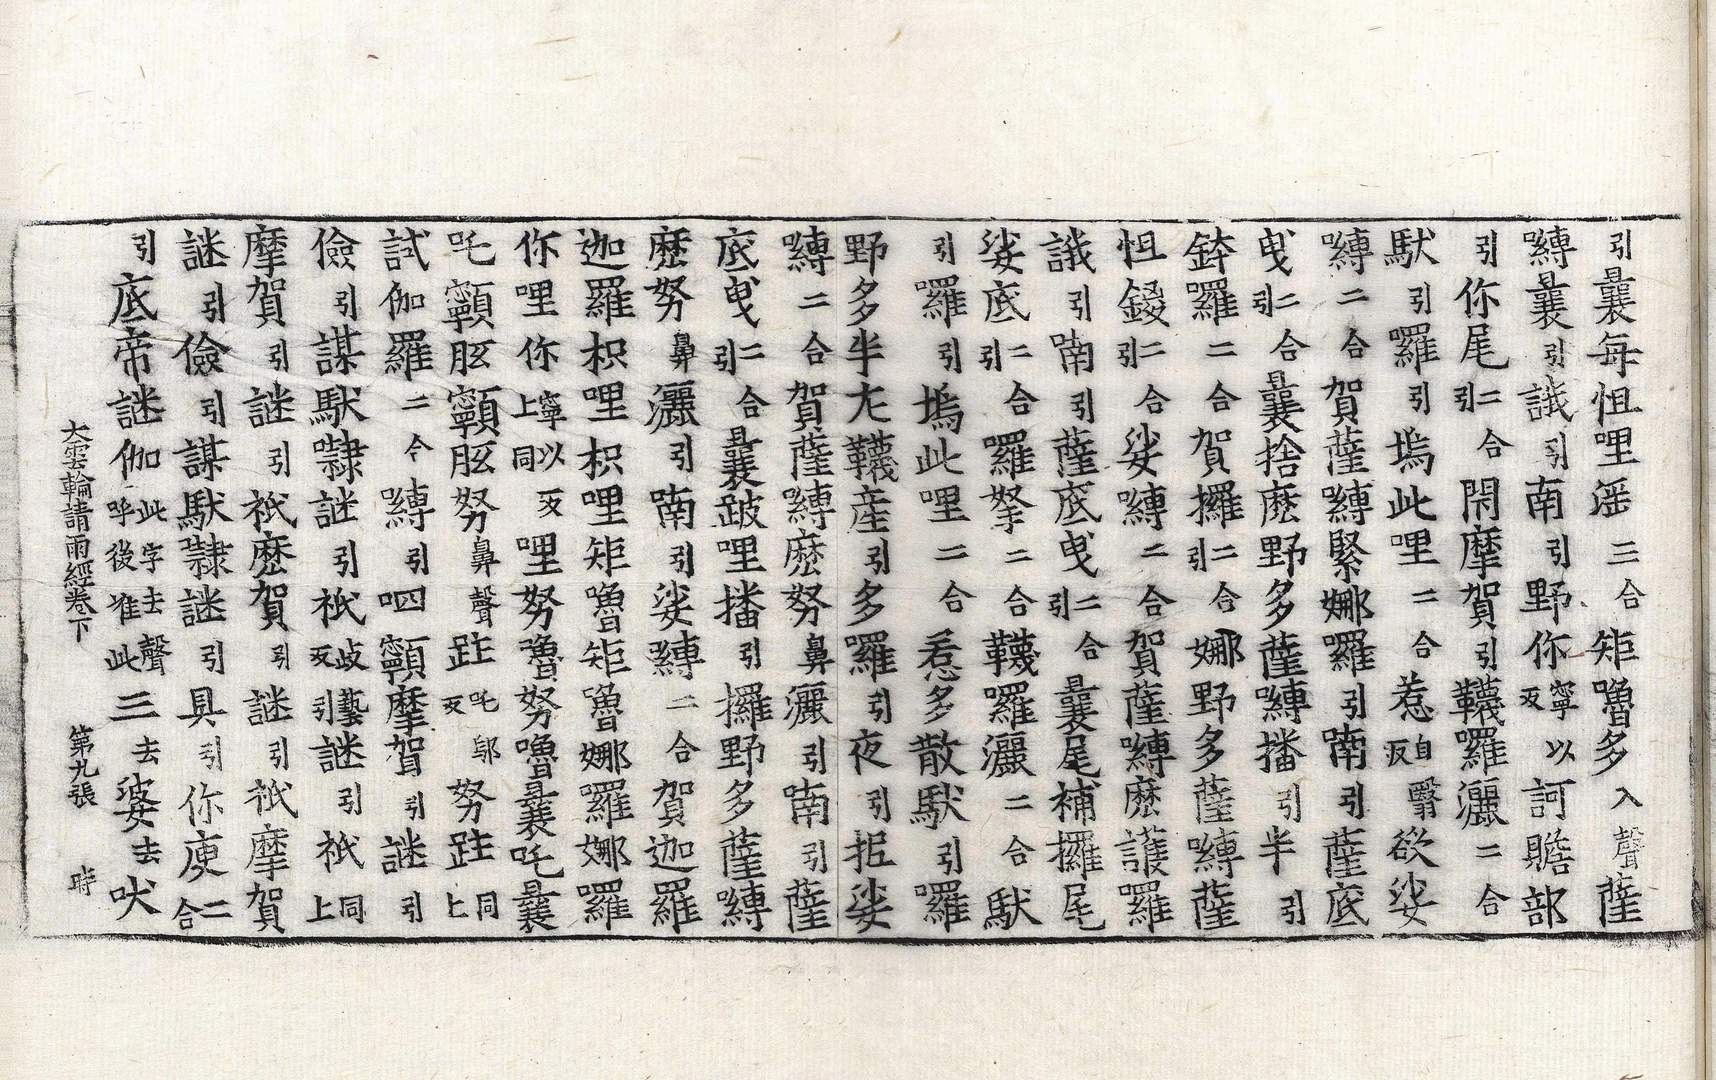 引曩每怛哩滛三合矩嚕多入聲薩
嚩曩引誐引南引野你寧以反訶贍部
引你尾二合引閇摩賀引韈囉灑二合
馱引羅引塢此哩二合惹自翳反欲娑
嚩二合賀薩嚩緊娜羅引喃引薩底
曵二合引曩捨麽野多薩嚩播引半引
鉢羅二合賀攞二合引娜野多薩嚩薩
怛錣二合引娑嚩二合賀薩嚩麽護羅
誐引喃引薩底曵二合引曩尾補攞尾
娑底二合引羅拏二合韈囉灑二合馱
引囉引塢此哩二合惹多散馱引羅
野多半左韈産引多羅引夜引抳娑
嚩二合賀薩嚩麽努鼻灑引喃引薩
底曵二合引曩跛哩播引攞野多薩嚩
麽努鼻灑引喃引娑嚩二合賀迦羅
迦羅枳哩枳哩矩嚕矩嚕娜羅娜羅
你哩你寧以反上同哩努嚕努嚕曩吒曩
吒顊胘顊胘努鼻聲跓吒邬反努跓同上
試伽羅二合嚩引呬顊摩賀引謎
儉引謀馱隸謎引祇歧藝反引謎引祇同上
摩賀引謎引祇麽賀引謎引祇摩賀
謎引儉引謀馱隸謎引具引你庾二合
引底帝謎伽此字去聲呼後准此三去婆去吠
大雲輪請雨經卷下 第九張 時